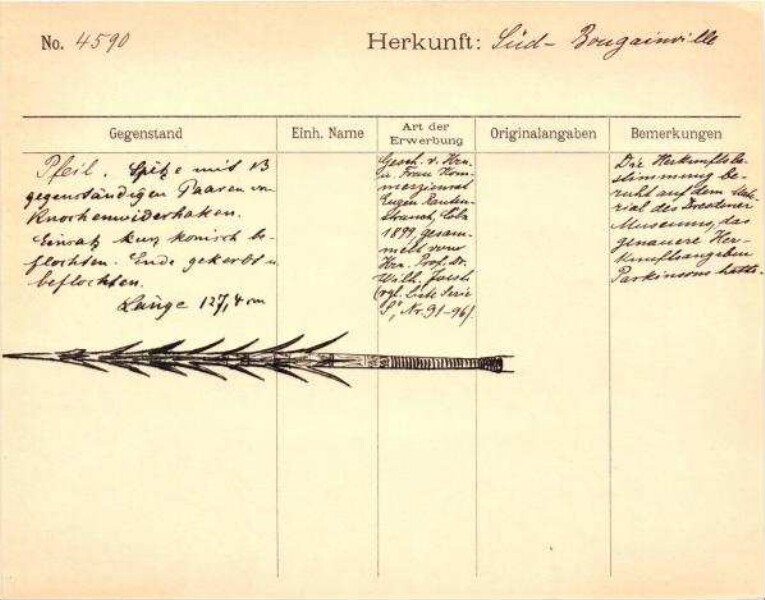 No. 4590
Herkunft: Süd- Bougainville
Gegenstand
Einh. Name
Art der Erwerbung
Originalangaben
Bemerkungen
Pfeil. Spitze mit 13
gegenständigen Paaren von
Knochenwiderhaken.
Einsatz kurz konisch be-
flochten. Ende gekerbt u.
beflochten.
Länge 127,4 cm
Gesch. v. Hrn.
u. Frau Kom-
merzienrat
Eugen Rauten-
strauch, Cöln
1899, gesam-
melt von
Hrn. Prof. Dr.
Wilh. Joest
(vgl. Serie
Nr. 91-96).
Die Herkunftsbe-
stimmung be-
ruht auf dem Mate-
rial des Dresdener
Museums, das
genauere Her-
kunftsangaben
Parkinsons hatte.